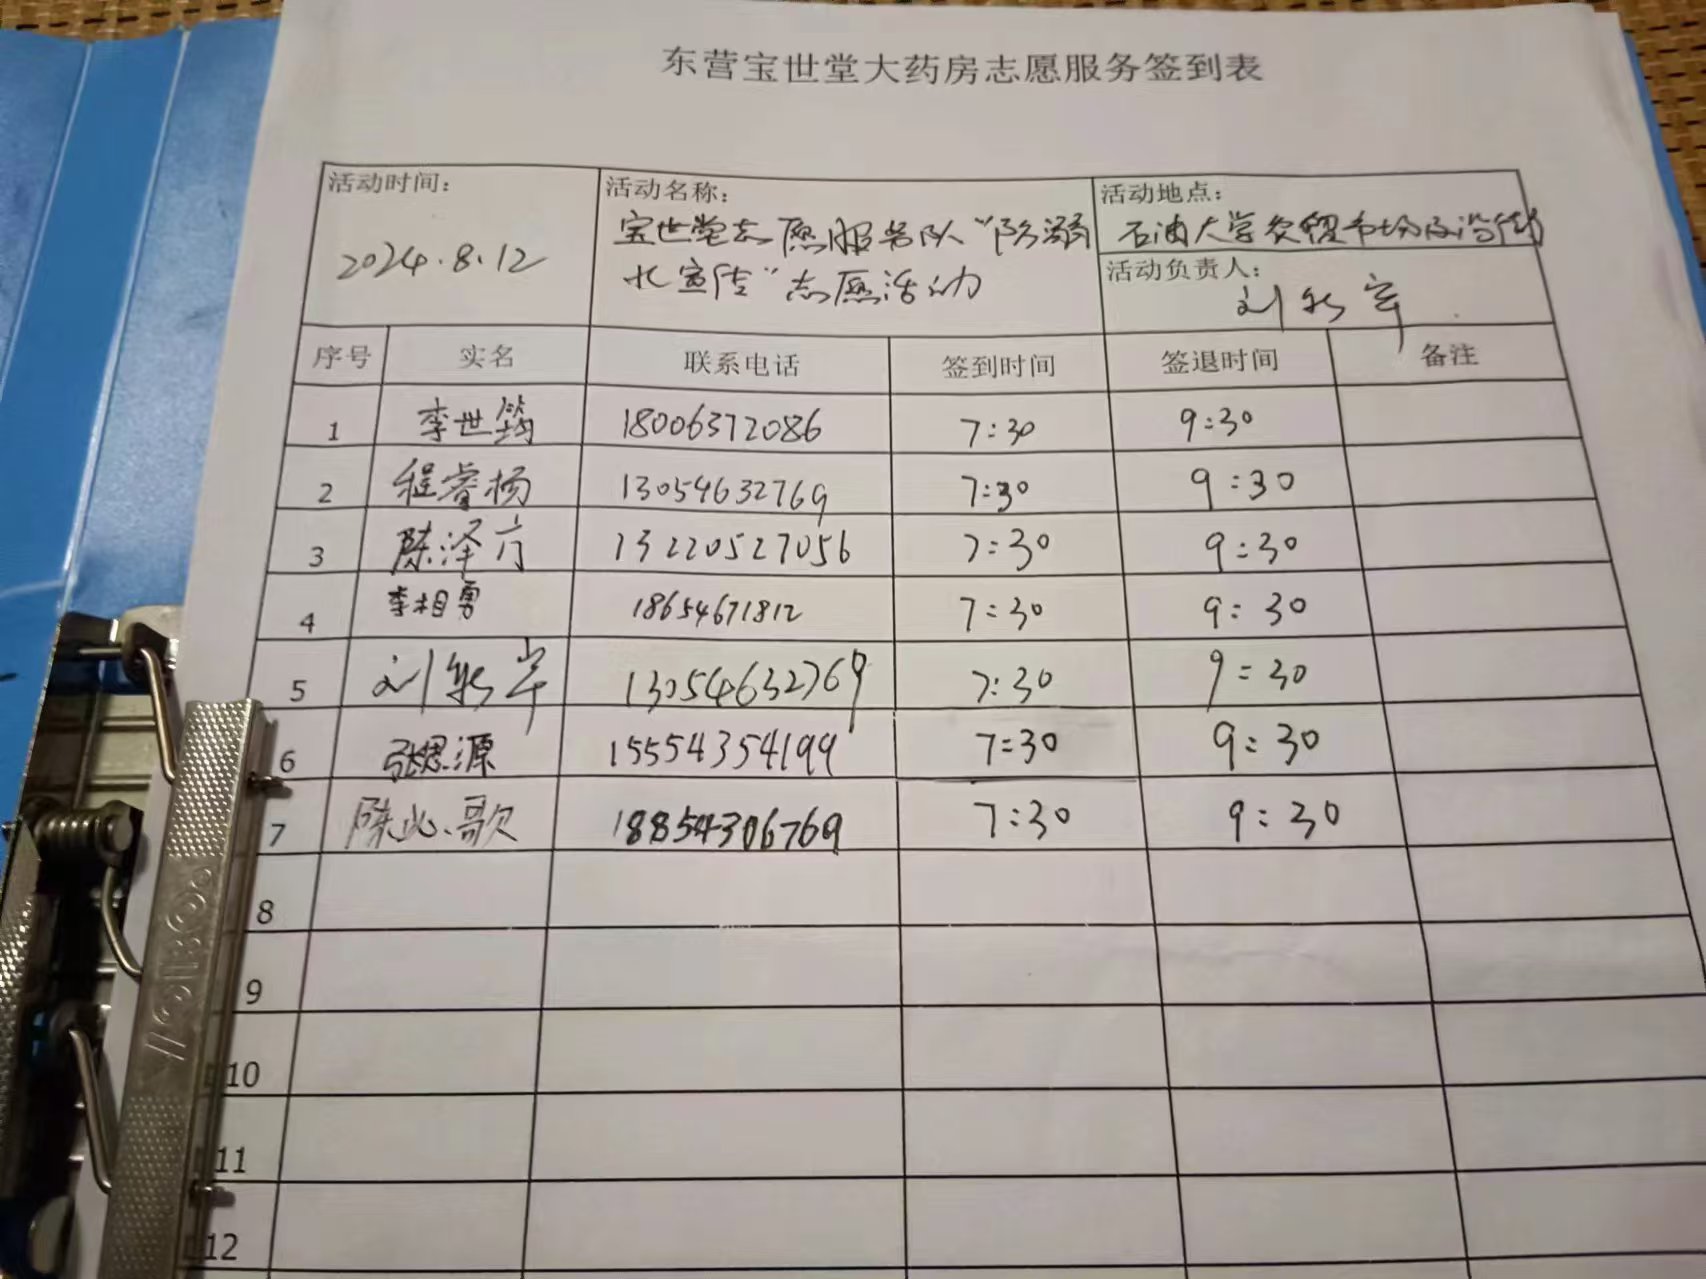 东营宝世堂大药房志愿服务签到表
活动时间: 活动名称: 活动地点:
2024.8.12 宝世堂志愿服务队“防溺 石油大学农贸市场及沿街
水宣传”志愿活动 活动负责人:
刘
序号 实名 联系电话 签到时间 签退时间 备注
1 李世筠 18006372086 7:30 9:30
2 程睿杨 13054632769 7:30 9:30
3 陈泽 13220527056 7:30 9:30
4 李相勇 18654671812 7:30 9:30
5 刘 13054632769 7:30 9:30
6 张思源 15554354199 7:30 9:30
7 陈 歌 18854306769 7:30 9:30
8
9
10
11
12